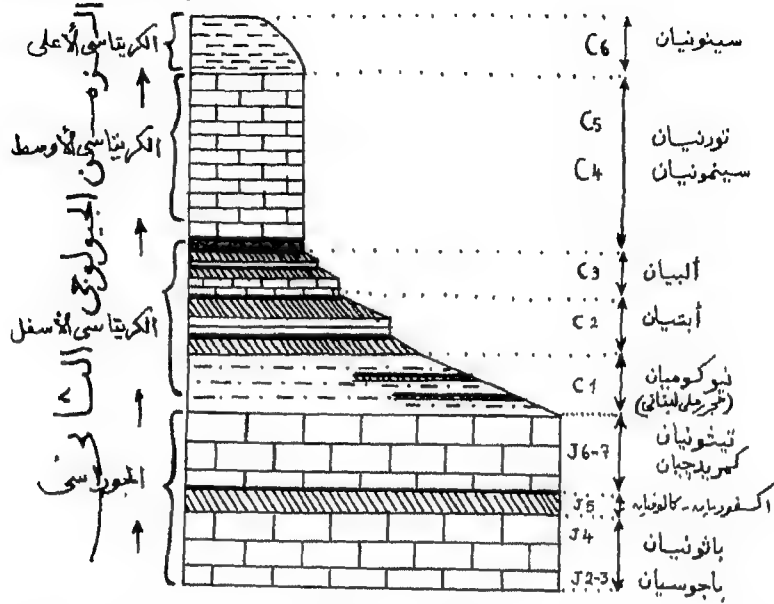 الزمن الجيولوجي الثاني
الكريتاسي الأعلى
الكريتاسي الأوسط
الكريتاسي الأسفل
الجوراسي
C6
سينونيان
C5
تورنيان
C4
سينمونيان
C3
ألبيان
C2
أبتيان
C1
نيوكوميان
(حجر رملي لبناني)
J6-7
تيثونيان
كمريدجيان
J5
اكسفورديان - كالوفيان
J4
باثونيان
J2-3
باجوسيان